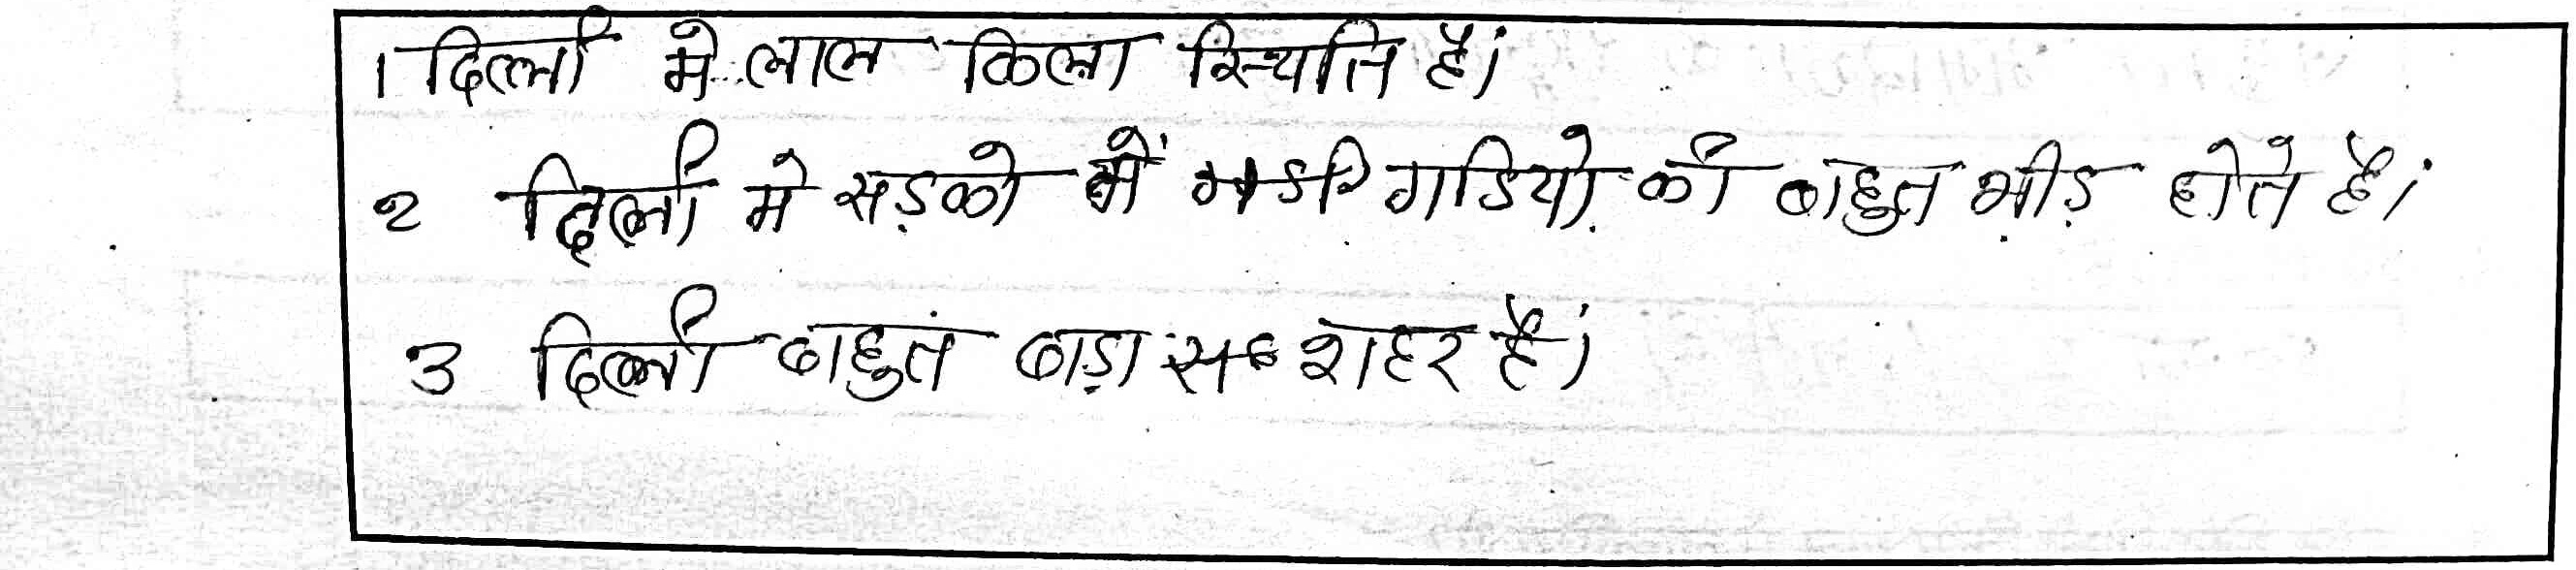 1 दिल्ली मे लाल किला स्थिति हैं।
२ दिल्ली मे सड़को में गाडियो की बहुत भीड़ होते हैं।
3 दिल्ली बहुतं बड़ा शहर हैं।